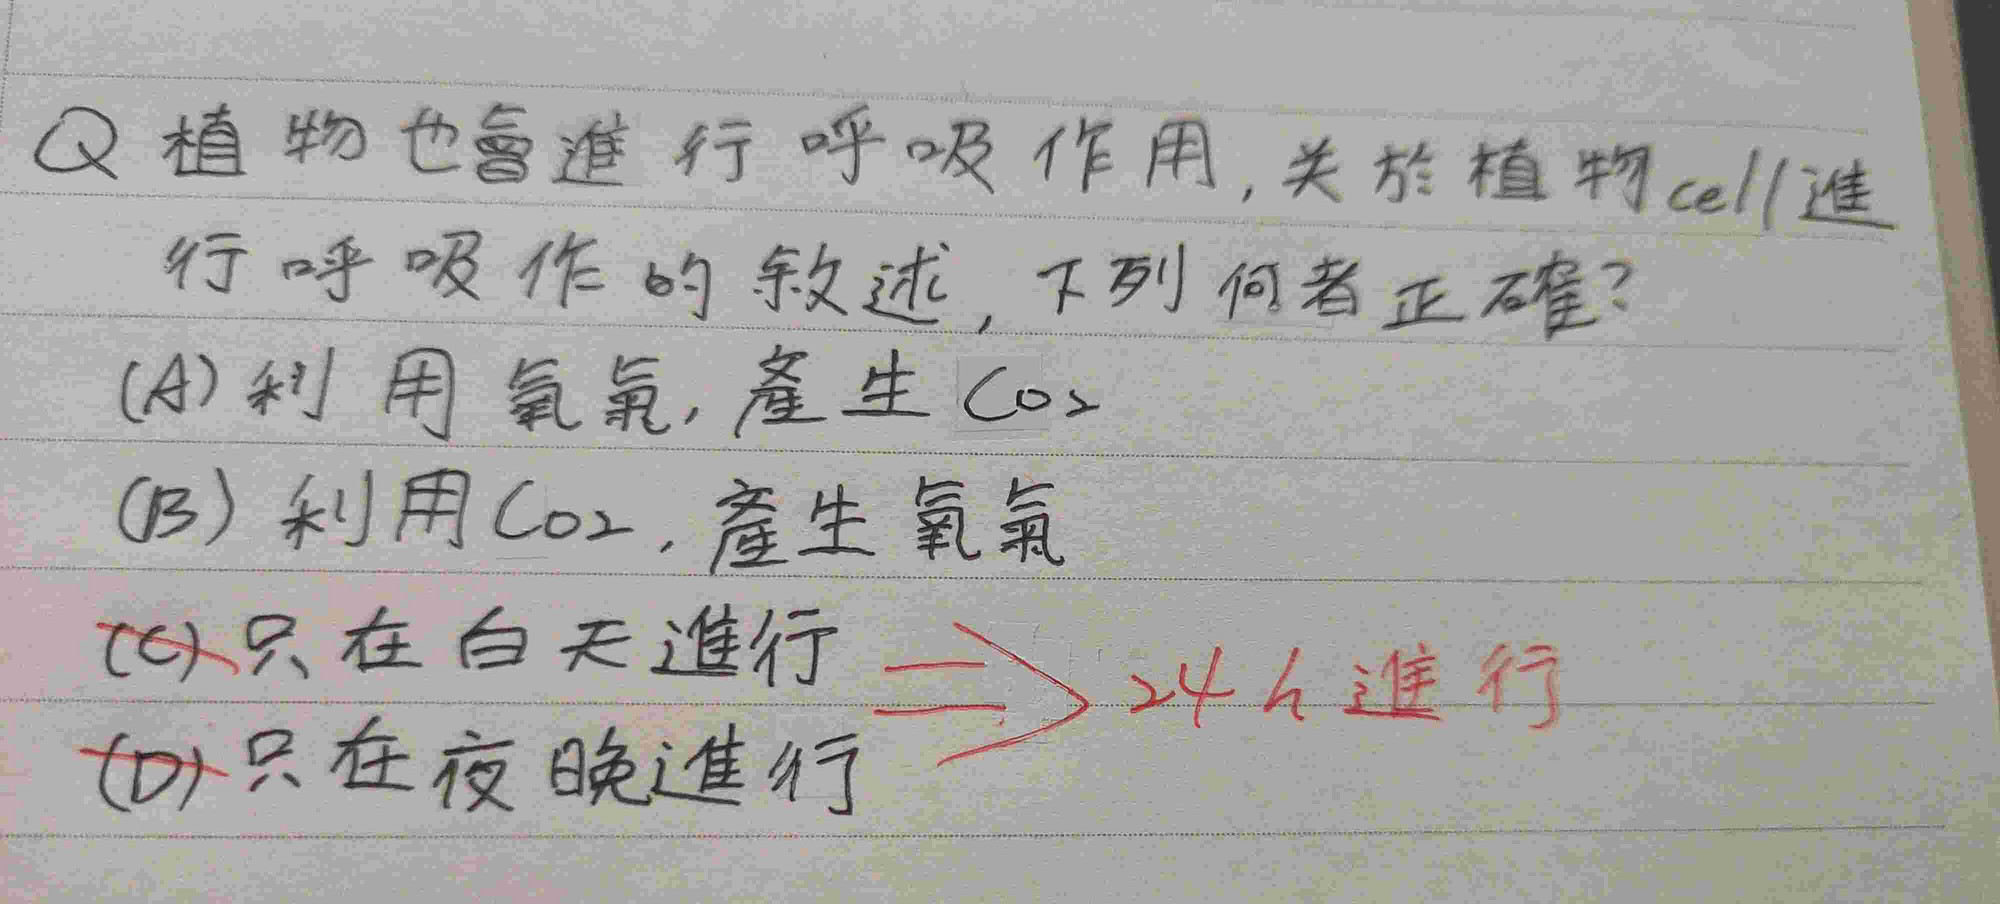 Q 植物也會進行呼吸作用,关於植物cell進
行呼吸作的敘述,下列何者正確?
(A)利用氧氣,產生CO2
(B)利用CO2,產生氧氣
(C)只在白天進行
24h進行
(D)只在夜晚進行